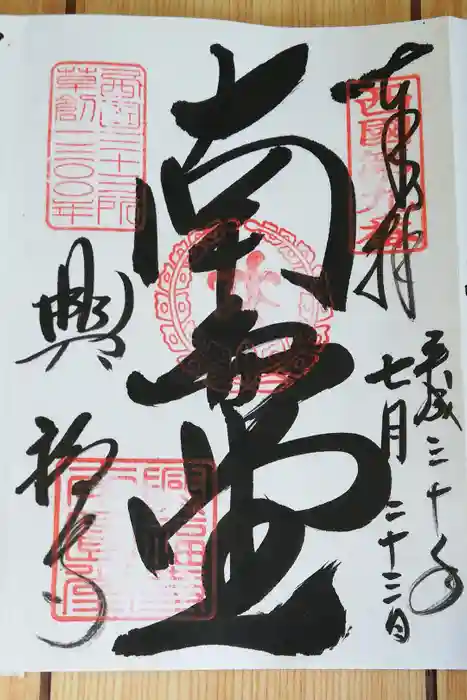 奉拝
西國第九番
平成三十年
七月二十三日
南円堂
西国三十三所
草創一三〇〇年
興福寺